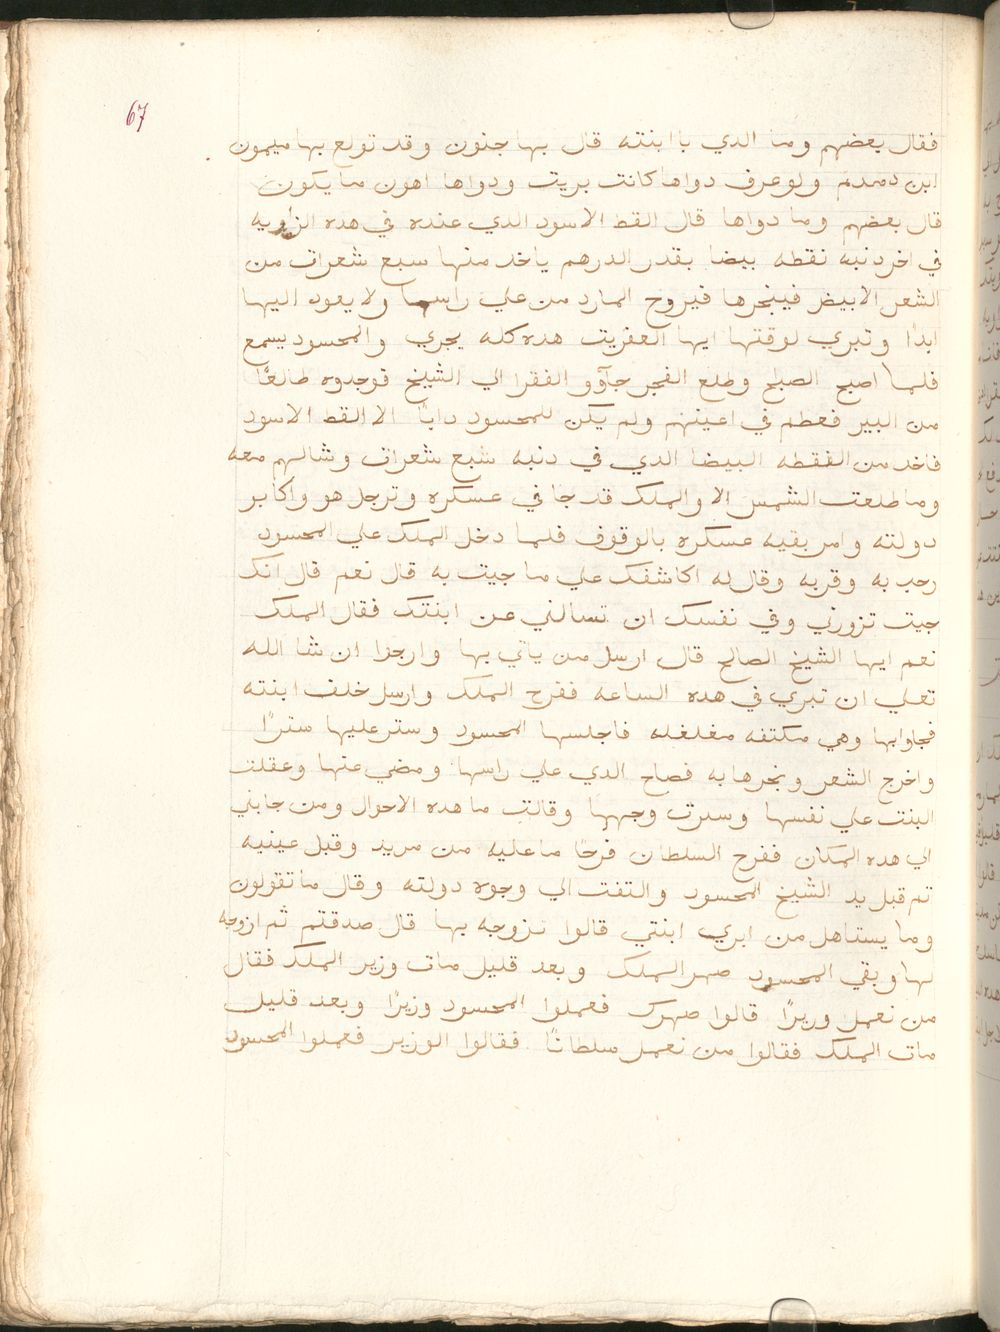 67
فقال بعضهم وما الدي باابنته قال بها جنون وقد تولع بها ميمون
ابن دمدم ولو عرف دواها كانت بريت ودواها اهون ما يكون
قال بعضهم وما دواها قال القط الاسود الدي عنده في هده الزاويه
في اخر دنبه نقطه بيضا بقدر الدرهم ياخد منها سبع شعرات من
الشعر الابيض فيبخرها فيروح المارد من علي راسها ولا يعود اليها
ابدًا وتبري لوقتها ايها العفريت هده كله يجري والمحسود يسمع
فلما اصبح الصباح وطلع الفجر جآوو الفقرا الي الشيخ فوجدوه طالعًا
من البير فعظم في اعينهم ولم يكن للمحسود دابًا الا القط الاسود
فاخد من النقطه البيضا الدي في دنبه سبع شعرات وشالهم معه
وما طلعت الشمس الا والملك قد جا في عسكره وترجل هو واكابر
دولته وامر بقيه عسكره بالوقوف فلما دخل الملك علي المحسود
رحب به وقربه وقال له اكاشفك علي ما جيت به قال نعم قال انك
جيت تزورني وفي نفسك ان تسالني عن ابنتك فقال الملك
نعم ايها الشيخ الصالح قال ارسل من ياتي بها وارجوا ان شا الله
تعلي ان تبري في هده الساعه ففرح الملك وارسل خلف ابنته
فجاوابها وهي مكتفه مغلغله فاجلسها المحسود وستر عليها سترًا
واخرج الشعر وبخرها به فصاح الدي علي راسها ومضي عنها وعقلت
البنت علي نفسها وسترت وجهها وقالت ما هده الاحوال ومن جابني
الي هده المكان ففرح السلطان فرحًا ما عليه من مريد وقبل عينيه
تم قبل يد الشيخ المحسود والتفت الي وجوه دولته وقال ما تقولون
وما يستاهل من ابري ابنتي قالوا نزوجه بها قال صدقتم ثم ازوجه
لها وبقي المحسود صهر الملك وبعد قليل مات وزير الملك فقال
من نعمل وزيرًا قالوا صهرك فعملوا المحسود وزيرًا وبعد قليل
مات الملك فقالوا من نعمل سلطانًا فقالوا الوزير فعملوا المحسود